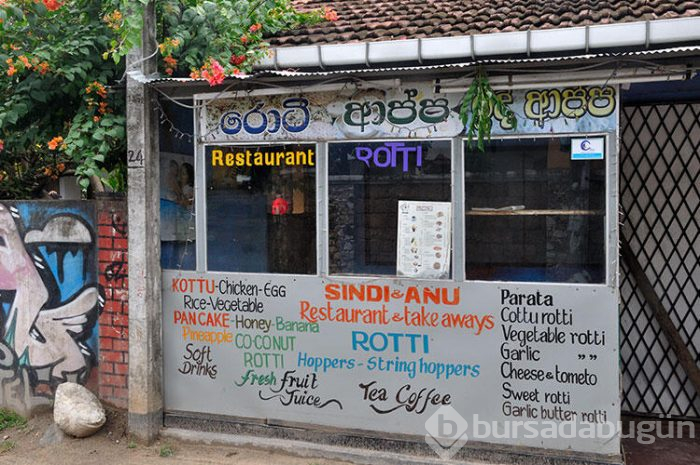 රොටි ආප්ප ඳි ආප්ප
Restaurant
ROTTI
24
KOTTU-Chicken-EGG
Rice-Vegetable
PAN CAKE-Honey-Banana
Pineapple
CO-CONUT
ROTTI
Soft
Drinks
fresh Fruit
Juice
SINDI & ANU
Restaurant & take aways
ROTTI
Hoppers-String hoppers
Tea Coffee
Parata
Cottu rotti
Vegetable rotti
Garlic " "
Cheese & tomato
Sweet rotti
Garlic butter rotti
bursadabugün